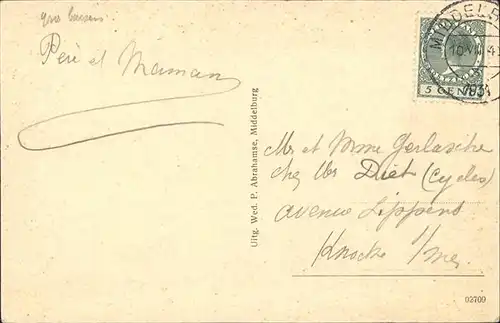 gros baisers
Père et Maman
MIDDELB
10 VIII 4
1934
5 CENT
Uitg. Wed. P. Abrahamse, Middelburg
Mr et Mme Gerlache
chez Mr Diet (Cycles)
avenue Lippens
Knocke s/mer
02709